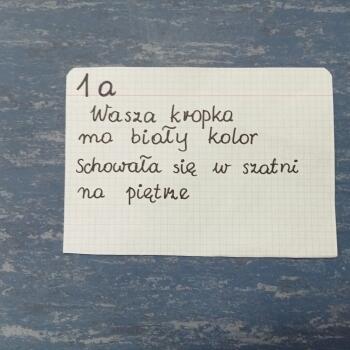 1a
Wasza kropka
ma biały kolor
Schowała się w szatni
na piętrze